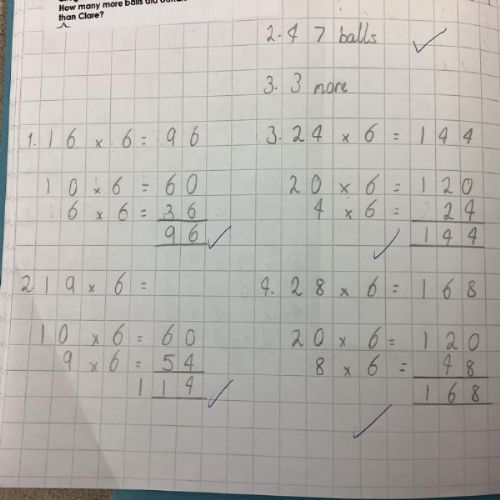 How many more balls did
than Clare?
2. 47 balls
3. 3 more
1. 16 x 6 = 96
10 x 6 = 60
6 x 6 = 36
96
2. 19 x 6 =
10 x 6 = 60
9 x 6 = 54
114
3. 24 x 6 = 144
20 x 6 = 120
4 x 6 = 24
144
4. 28 x 6 = 168
20 x 6 = 120
8 x 6 = 48
168